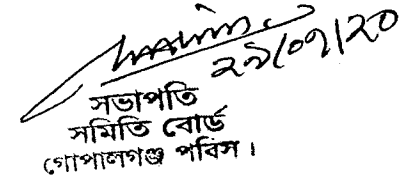 ২৯/০৭/২০
সভাপতি
সমিতি বোর্ড
গোপালগঞ্জ পবিস।